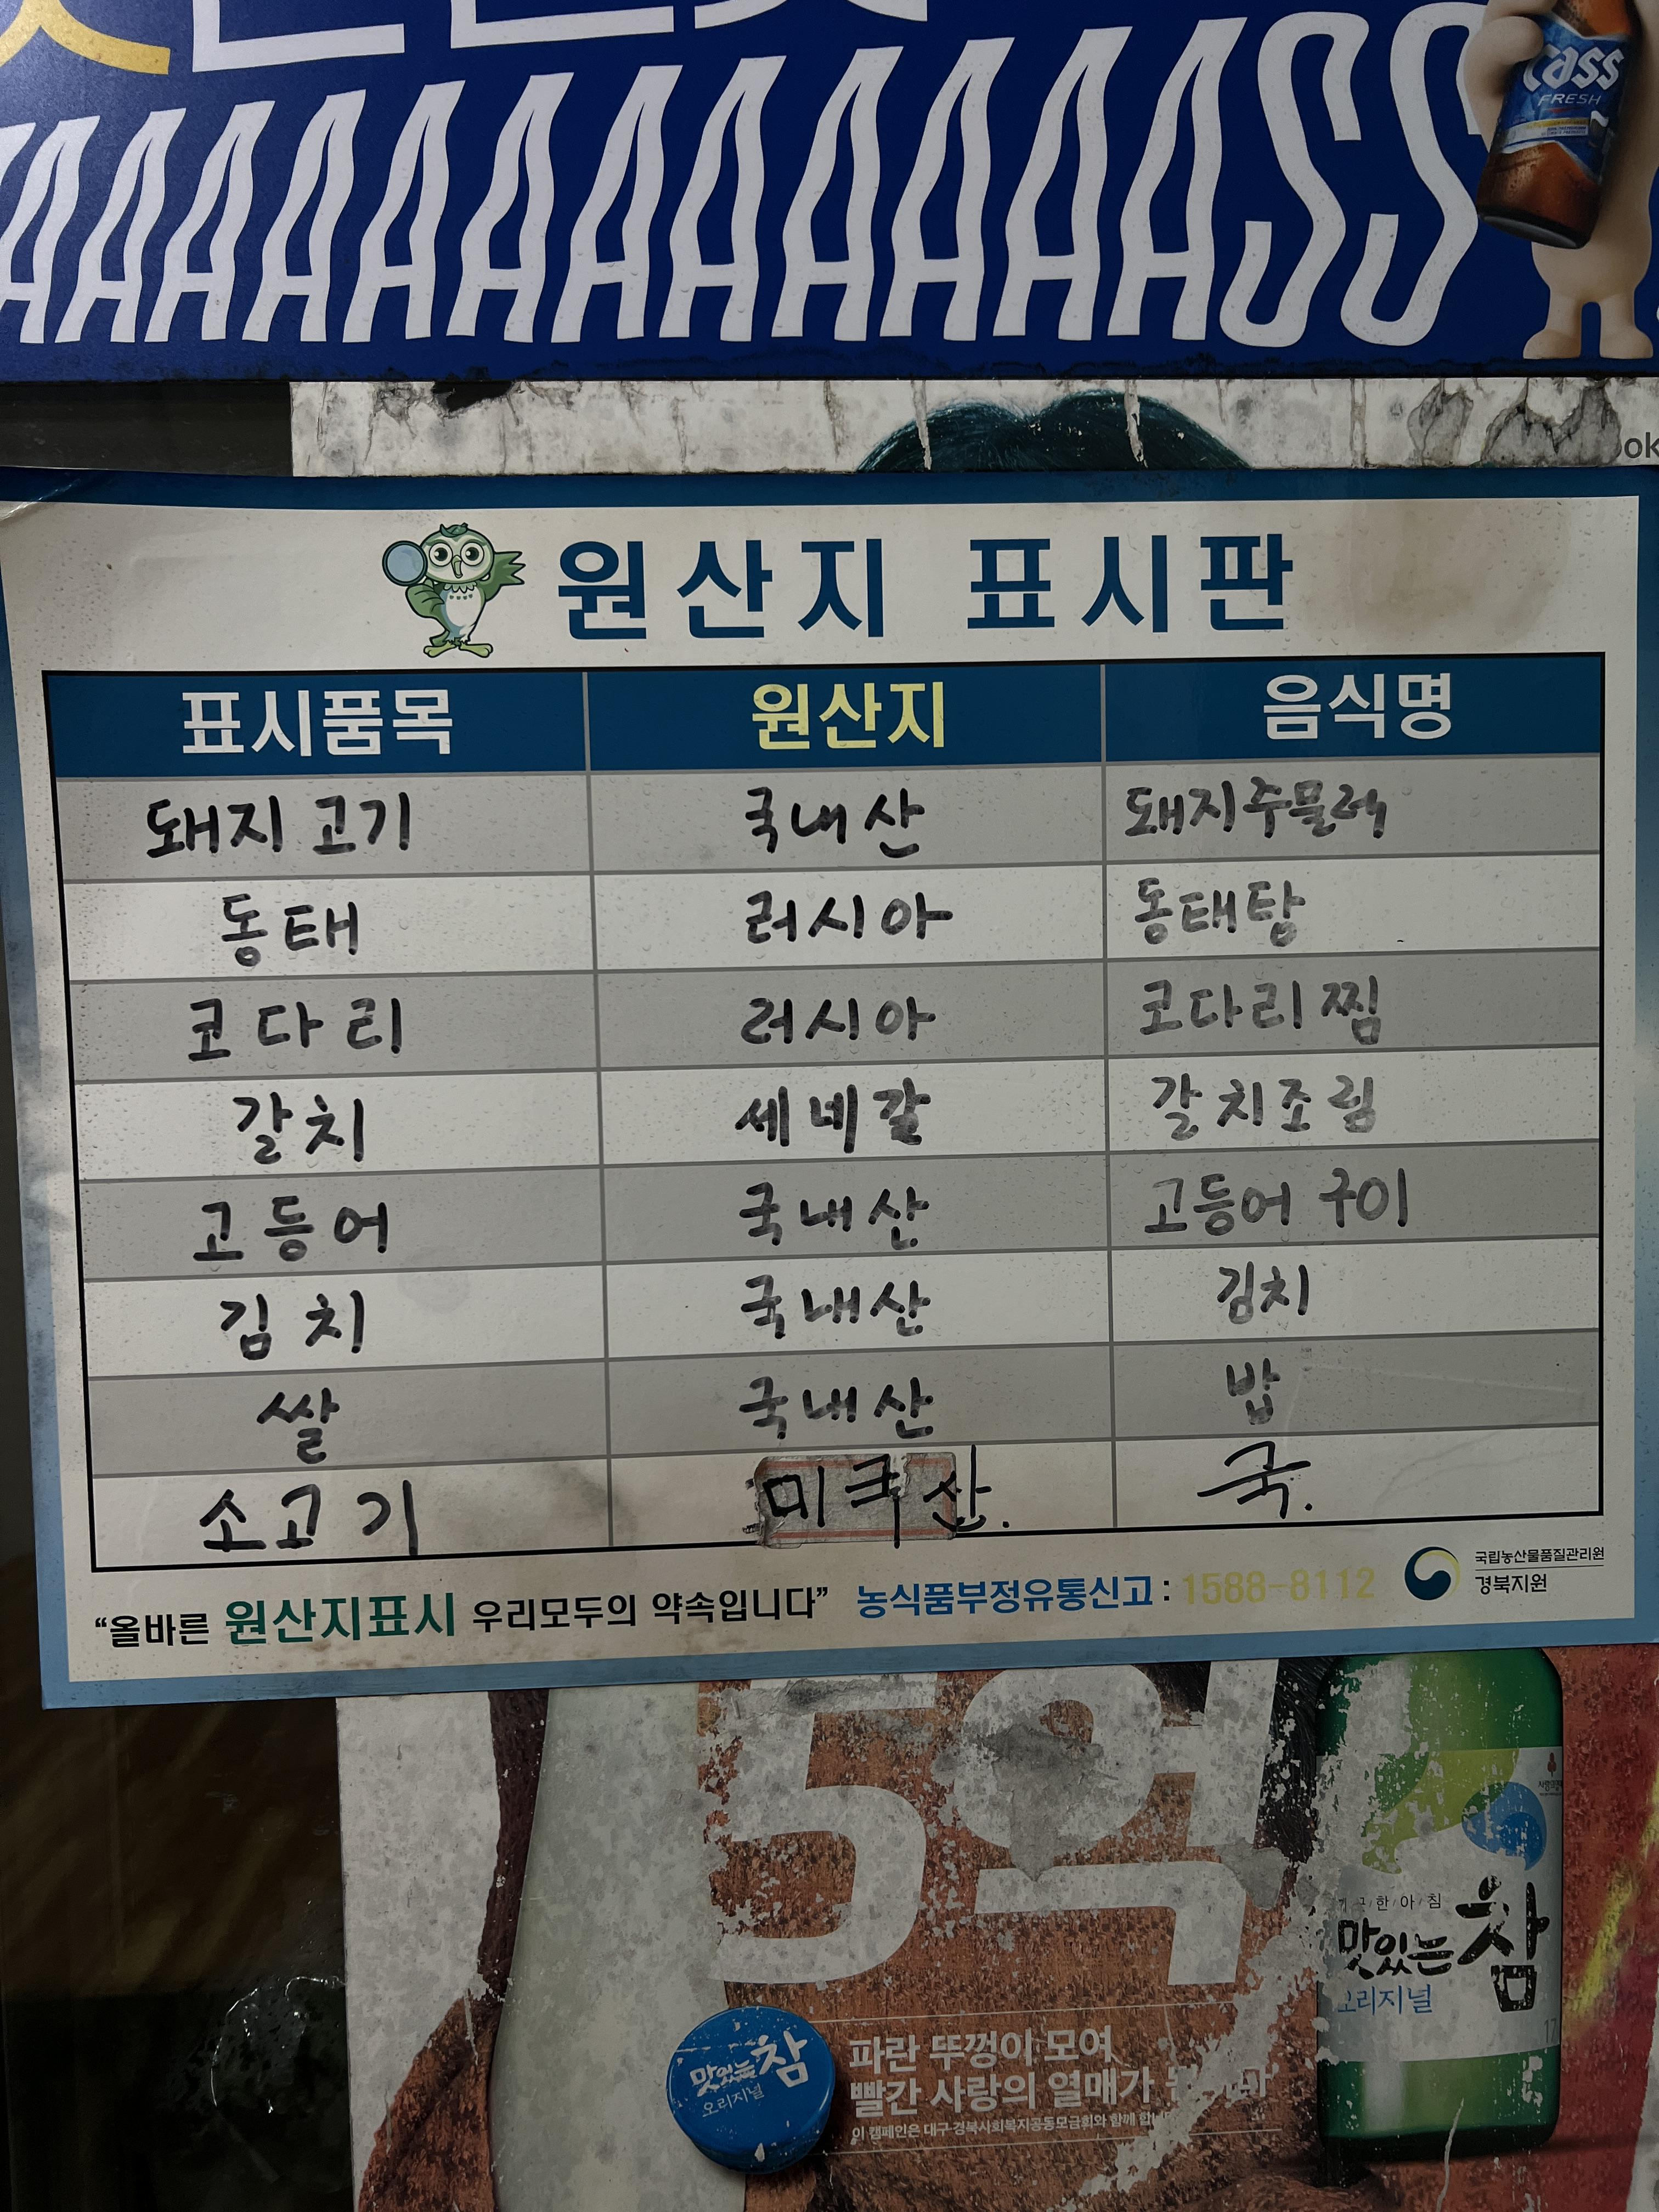 AAAAAAAAAAAASS
Cass
FRESH
원산지 표시판
표시품목 원산지 음식명
돼지고기 국내산 돼지주물럭
동태 러시아 동태탕
코다리 러시아 코다리찜
갈치 세네갈 갈치조림
고등어 국내산 고등어 구이
김치 국내산 김치
쌀 국내산 밥
소고기 미국산. 국.
“올바른 원산지표시 우리모두의 약속입니다” 농식품부정유통신고 : 1588-8112
국립농산물품질관리원
경북지원
5억
한아침
맛있는참
오리지널
맛있는참
오리지널
파란 뚜껑이 모여
빨간 사랑의 열매가
이 캠페인은 대구·경북사회복지공동모금회와 함께